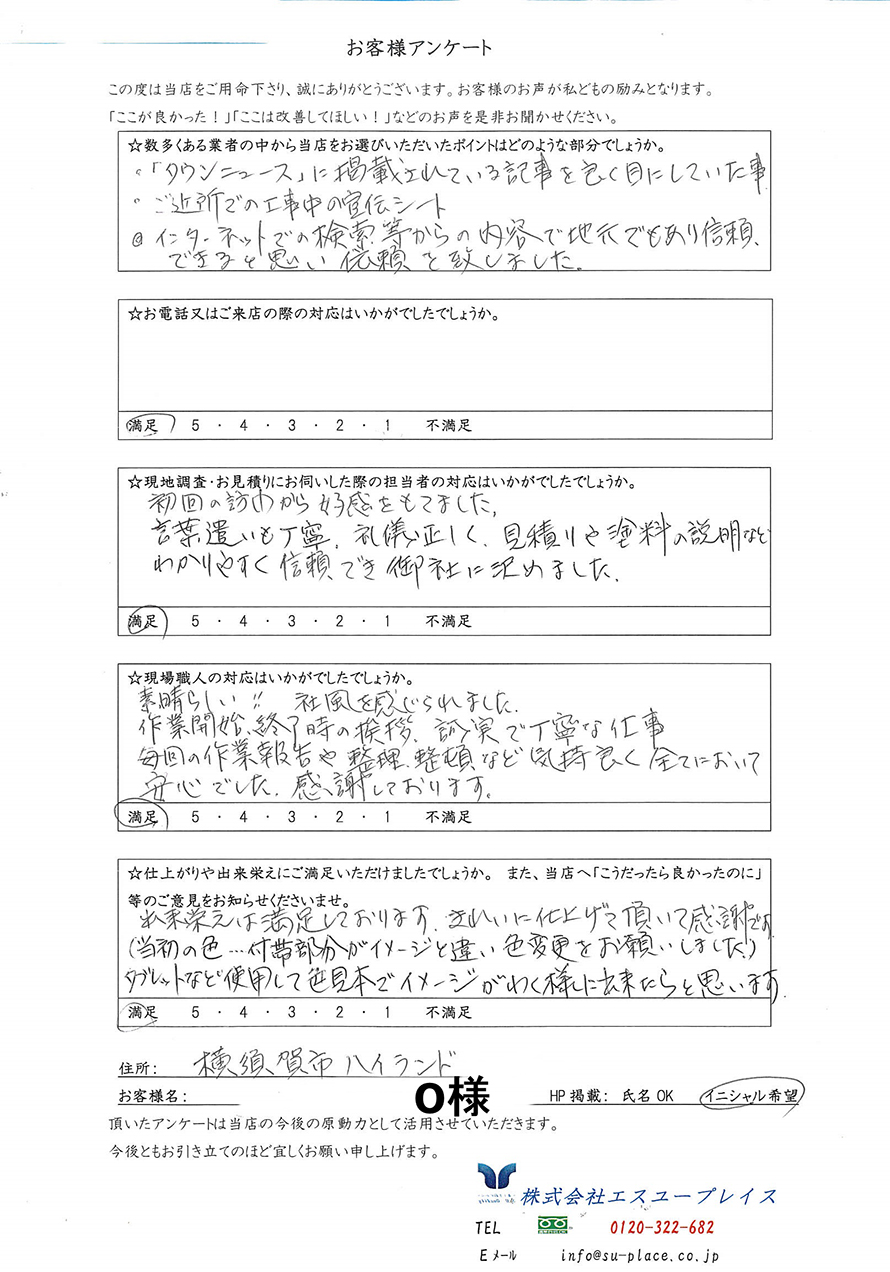 お客様アンケート
この度は当店をご用命下さり、誠にありがとうございます。お客様のお声が私どもの励みとなります。
「ここが良かった！」「ここは改善してほしい！」などのお声を是非お聞かせください。
☆数多くある業者の中から当店をお選びいただいたポイントはどのような部分でしょうか。
・「タウンニュース」に掲載されている記事を良く目にしていた事
・ご近所での工事中の宣伝シート
◎インターネットでの検索等からの内容で地元でもあり信頼
できると思い依頼を致しました。
☆お電話又はご来店の際の対応はいかがでしたでしょうか。
満足 5 ・ 4 ・ 3 ・ 2 ・ 1 不満足
☆現地調査・お見積りにお伺いした際の担当者の対応はいかがでしたでしょうか。
初回の訪問から好感をもてました。
言葉遣いも丁寧、礼儀正しく、見積りや塗料の説明など
わかりやすく信頼でき御社に決めました。
満足 5 ・ 4 ・ 3 ・ 2 ・ 1 不満足
☆現場職人の対応はいかがでしたでしょうか。
素晴らしい!! 社風を感じられました。
作業開始、終了時の挨拶、誠実で丁寧な仕事
毎回の作業報告や整理、整頓など気持良く全てにおいて
安心でした。感謝しております。
満足 5 ・ 4 ・ 3 ・ 2 ・ 1 不満足
☆仕上がりや出来栄えにご満足いただけましたでしょうか。 また、当店へ「こうだったら良かったのに」
等のご意見をお知らせくださいませ。
出来栄えは満足しております。きれいに仕上げて頂いて感謝です
(当初の色…付帯部分がイメージと違い色変更をお願いしました!)
タブレットなど使用して色見本でイメージがわく様に出来たらと思います。
満足 5 ・ 4 ・ 3 ・ 2 ・ 1 不満足
住所： 横須賀市ハイランド
お客様名： O様 HP掲載： 氏名OK イニシャル希望
頂いたアンケートは当店の今後の原動力として活用させていただきます。
今後ともお引き立てのほど宜しくお願い申し上げます。
株式会社エスユープレイス
TEL 0120-322-682
Eメール info@su-place.co.jp